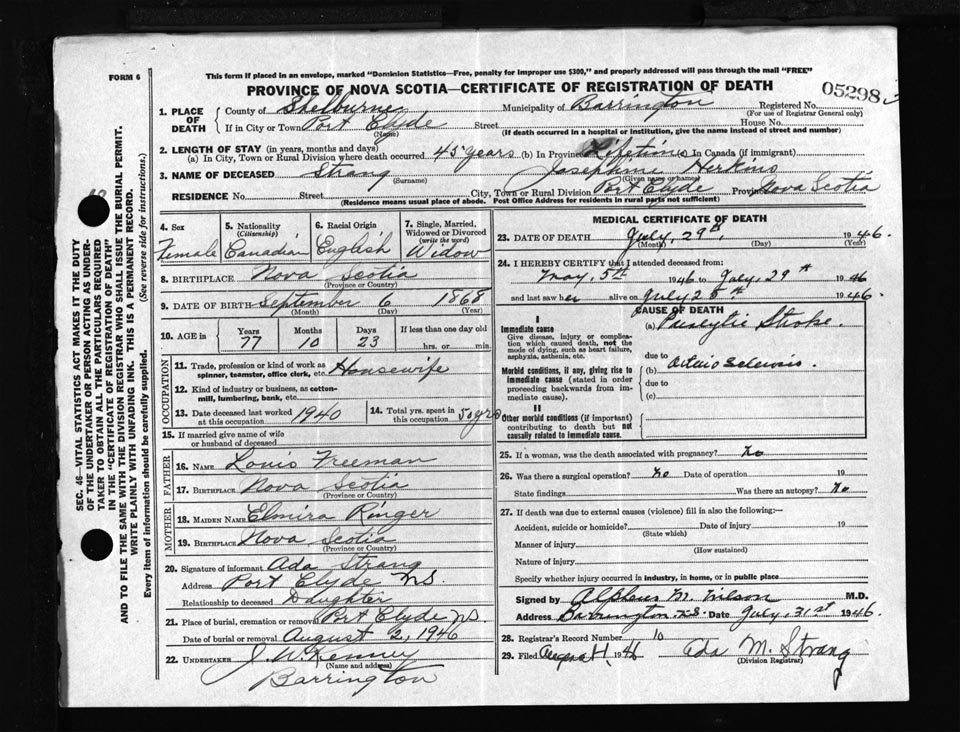 FORM 6
This form if placed in an envelope, marked "Dominion Statistics—Free, penalty for improper use $300," and properly addressed will pass through the mail "FREE"
PROVINCE OF NOVA SCOTIA—CERTIFICATE OF REGISTRATION OF DEATH
05298
1. PLACE OF DEATH
County of Shelburne Municipality of Barrington Registered No.
(For use of Registrar General only)
If in City or Town Port Clyde Street House No.
(Name) (If death occurred in a hospital or institution, give the name instead of street and number)
2. LENGTH OF STAY (in years, months and days)
(a) In City, Town or Rural Division where death occurred 45 years (b) In Province Lifetime (c) In Canada (if immigrant)
3. NAME OF DECEASED Strang Josephine
(Surname) (Given name or names)
RESIDENCE No. Street City, Town or Rural Division Port Clyde Province Nova Scotia
(Residence means usual place of abode. Post Office Address for residents in rural parts not sufficient)
4. Sex Female
5. Nationality (Citizenship) Canadian
6. Racial Origin English
7. Single, Married, Widowed or Divorced (write the word) Widow
8. BIRTHPLACE Nova Scotia
(Province or Country)
9. DATE OF BIRTH September 6 1868
(Month) (Day) (Year)
10. AGE in Years Months Days If less than one day old
77 10 23 hrs. or min.
OCCUPATION
11. Trade, profession or kind of work as spinner, teamster, office clerk, etc. Housewife
12. Kind of industry or business, as cotton-mill, lumbering, bank, etc.
13. Date deceased last worked at this occupation 1940
14. Total yrs. spent in this occupation 50 yrs
15. If married give name of wife or husband of deceased
FATHER
16. NAME Louis Freeman
17. BIRTHPLACE Nova Scotia
(Province or Country)
MOTHER
18. MAIDEN NAME Elmira Ringer
19. BIRTHPLACE Nova Scotia
(Province or Country)
20. Signature of informant Ada Strang
Address Port Clyde N.S.
Relationship to deceased Daughter
21. Place of burial, cremation or removal Port Clyde N.S.
Date of burial or removal August 2, 1946
22. UNDERTAKER J. W. Kenney
(Name and address)
Barrington
MEDICAL CERTIFICATE OF DEATH
23. DATE OF DEATH July, 29th, 1946.
(Month) (Day) (Year)
24. I HEREBY CERTIFY that I attended deceased from:
May, 5th 1946 to July, 29th 1946
and last saw her alive on July 1946.
CAUSE OF DEATH
I
Immediate cause
Give disease, injury or complication which caused death, not the mode of dying, such as heart failure, asphyxia, asthenia, etc.
(a) Stroke.
due to
Morbid conditions, if any, giving rise to immediate cause (stated in order proceeding backwards from immediate cause).
(b)
due to
(c)
II
Other morbid conditions (if important) contributing to death but not causally related to immediate cause.
25. If a woman, was the death associated with pregnancy? No
26. Was there a surgical operation? No Date of operation 19
State findings Was there an autopsy? No
27. If death was due to external causes (violence) fill in also the following:—
Accident, suicide or homicide? Date of injury 19
(State which)
Manner of injury
(How sustained)
Nature of injury
Specify whether injury occurred in industry, in home, or in public place
Signed by Alpheus M. Wilson M.D.
Address Barrington N.S. Date July, 31st 1946.
28. Registrar's Record Number 10
29. Filed 1946 Ada M. Strang
(Division Registrar)
SEC. 46—VITAL STATISTICS ACT MAKES IT THE DUTY
OF THE UNDERTAKER OR PERSON ACTING AS UNDER-
TAKER TO OBTAIN ALL THE PARTICULARS REQUIRED
IN THE "CERTIFICATE OF REGISTRATION OF DEATH"
AND TO FILE THE SAME WITH THE DIVISION REGISTRAR WHO SHALL ISSUE THE BURIAL PERMIT.
WRITE PLAINLY WITH UNFADING INK. THIS IS A PERMANENT RECORD.
Every item of information should be carefully supplied. (See reverse side for instructions.)